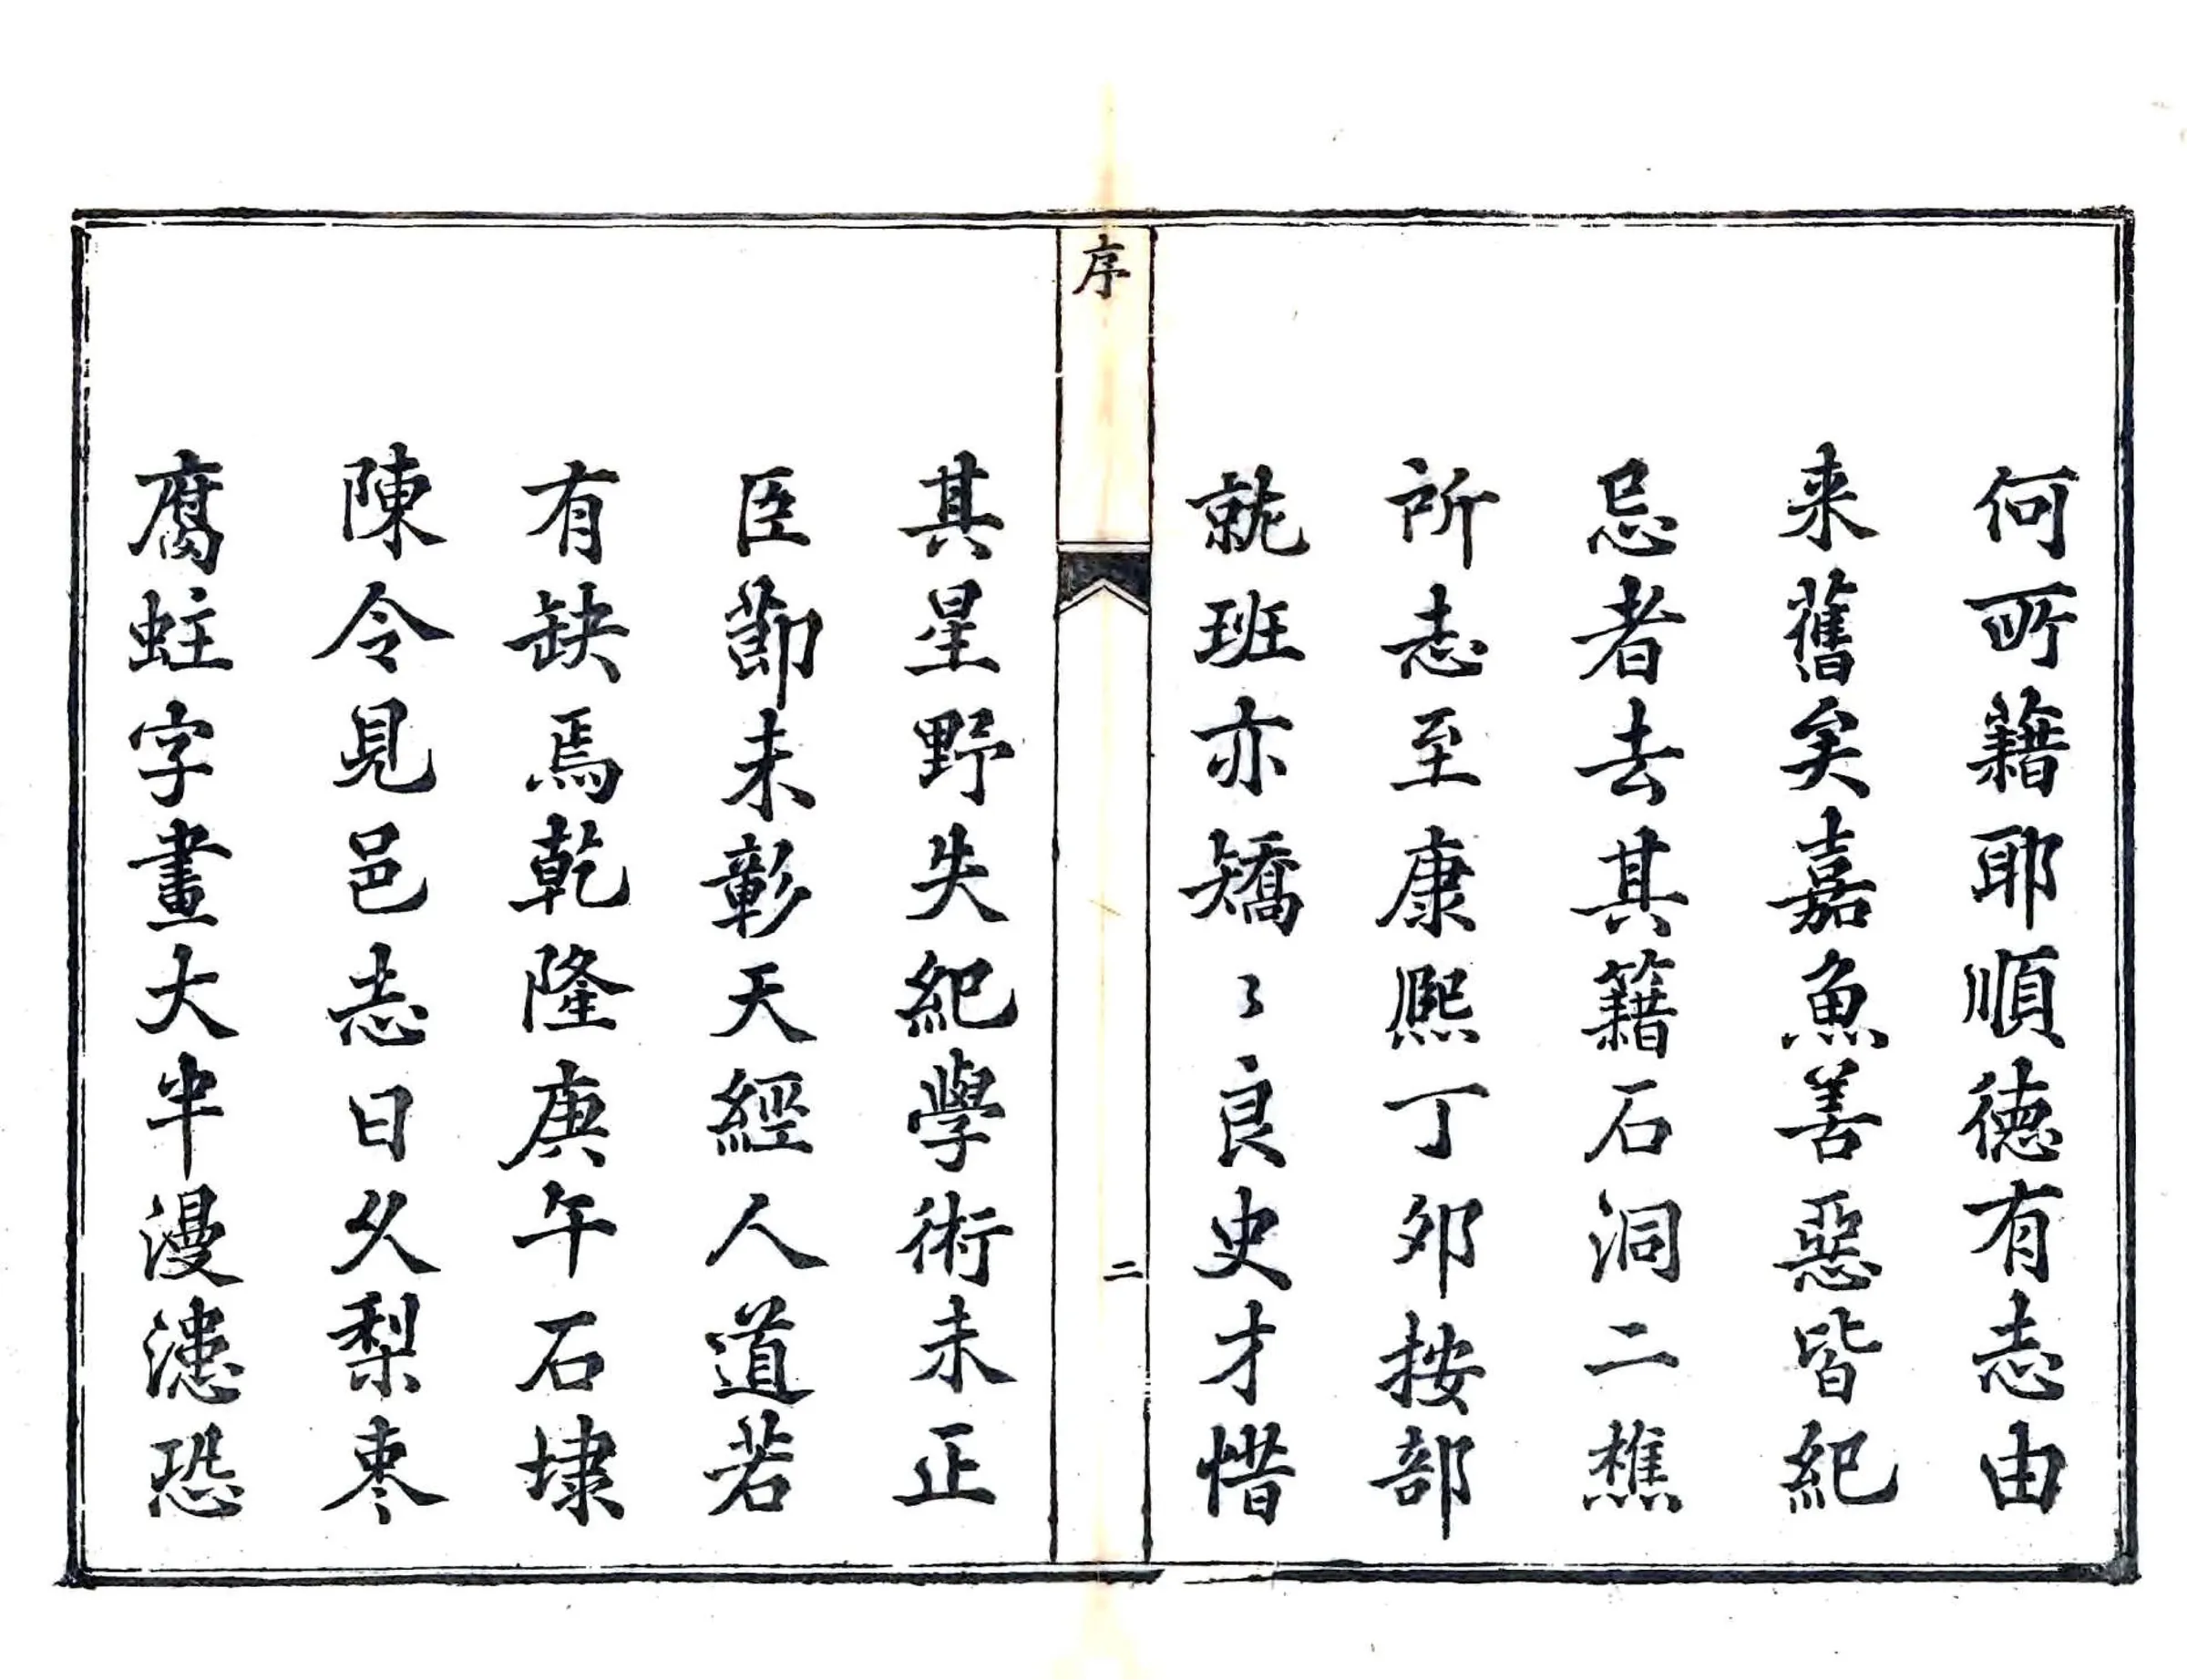 何所藉耶順徳有志由
来舊矣嘉魚善惡皆紀
忌者去其籍石洞二樵
所志至康熙丁卯按部
就班亦矯〻良史才惜
序
二
其星野失紀學術未正
臣節未彰天經人道若
有缺焉乾隆庚午石埭
陳令見邑志日久梨枣
腐蛀字畫大半漫漶恐